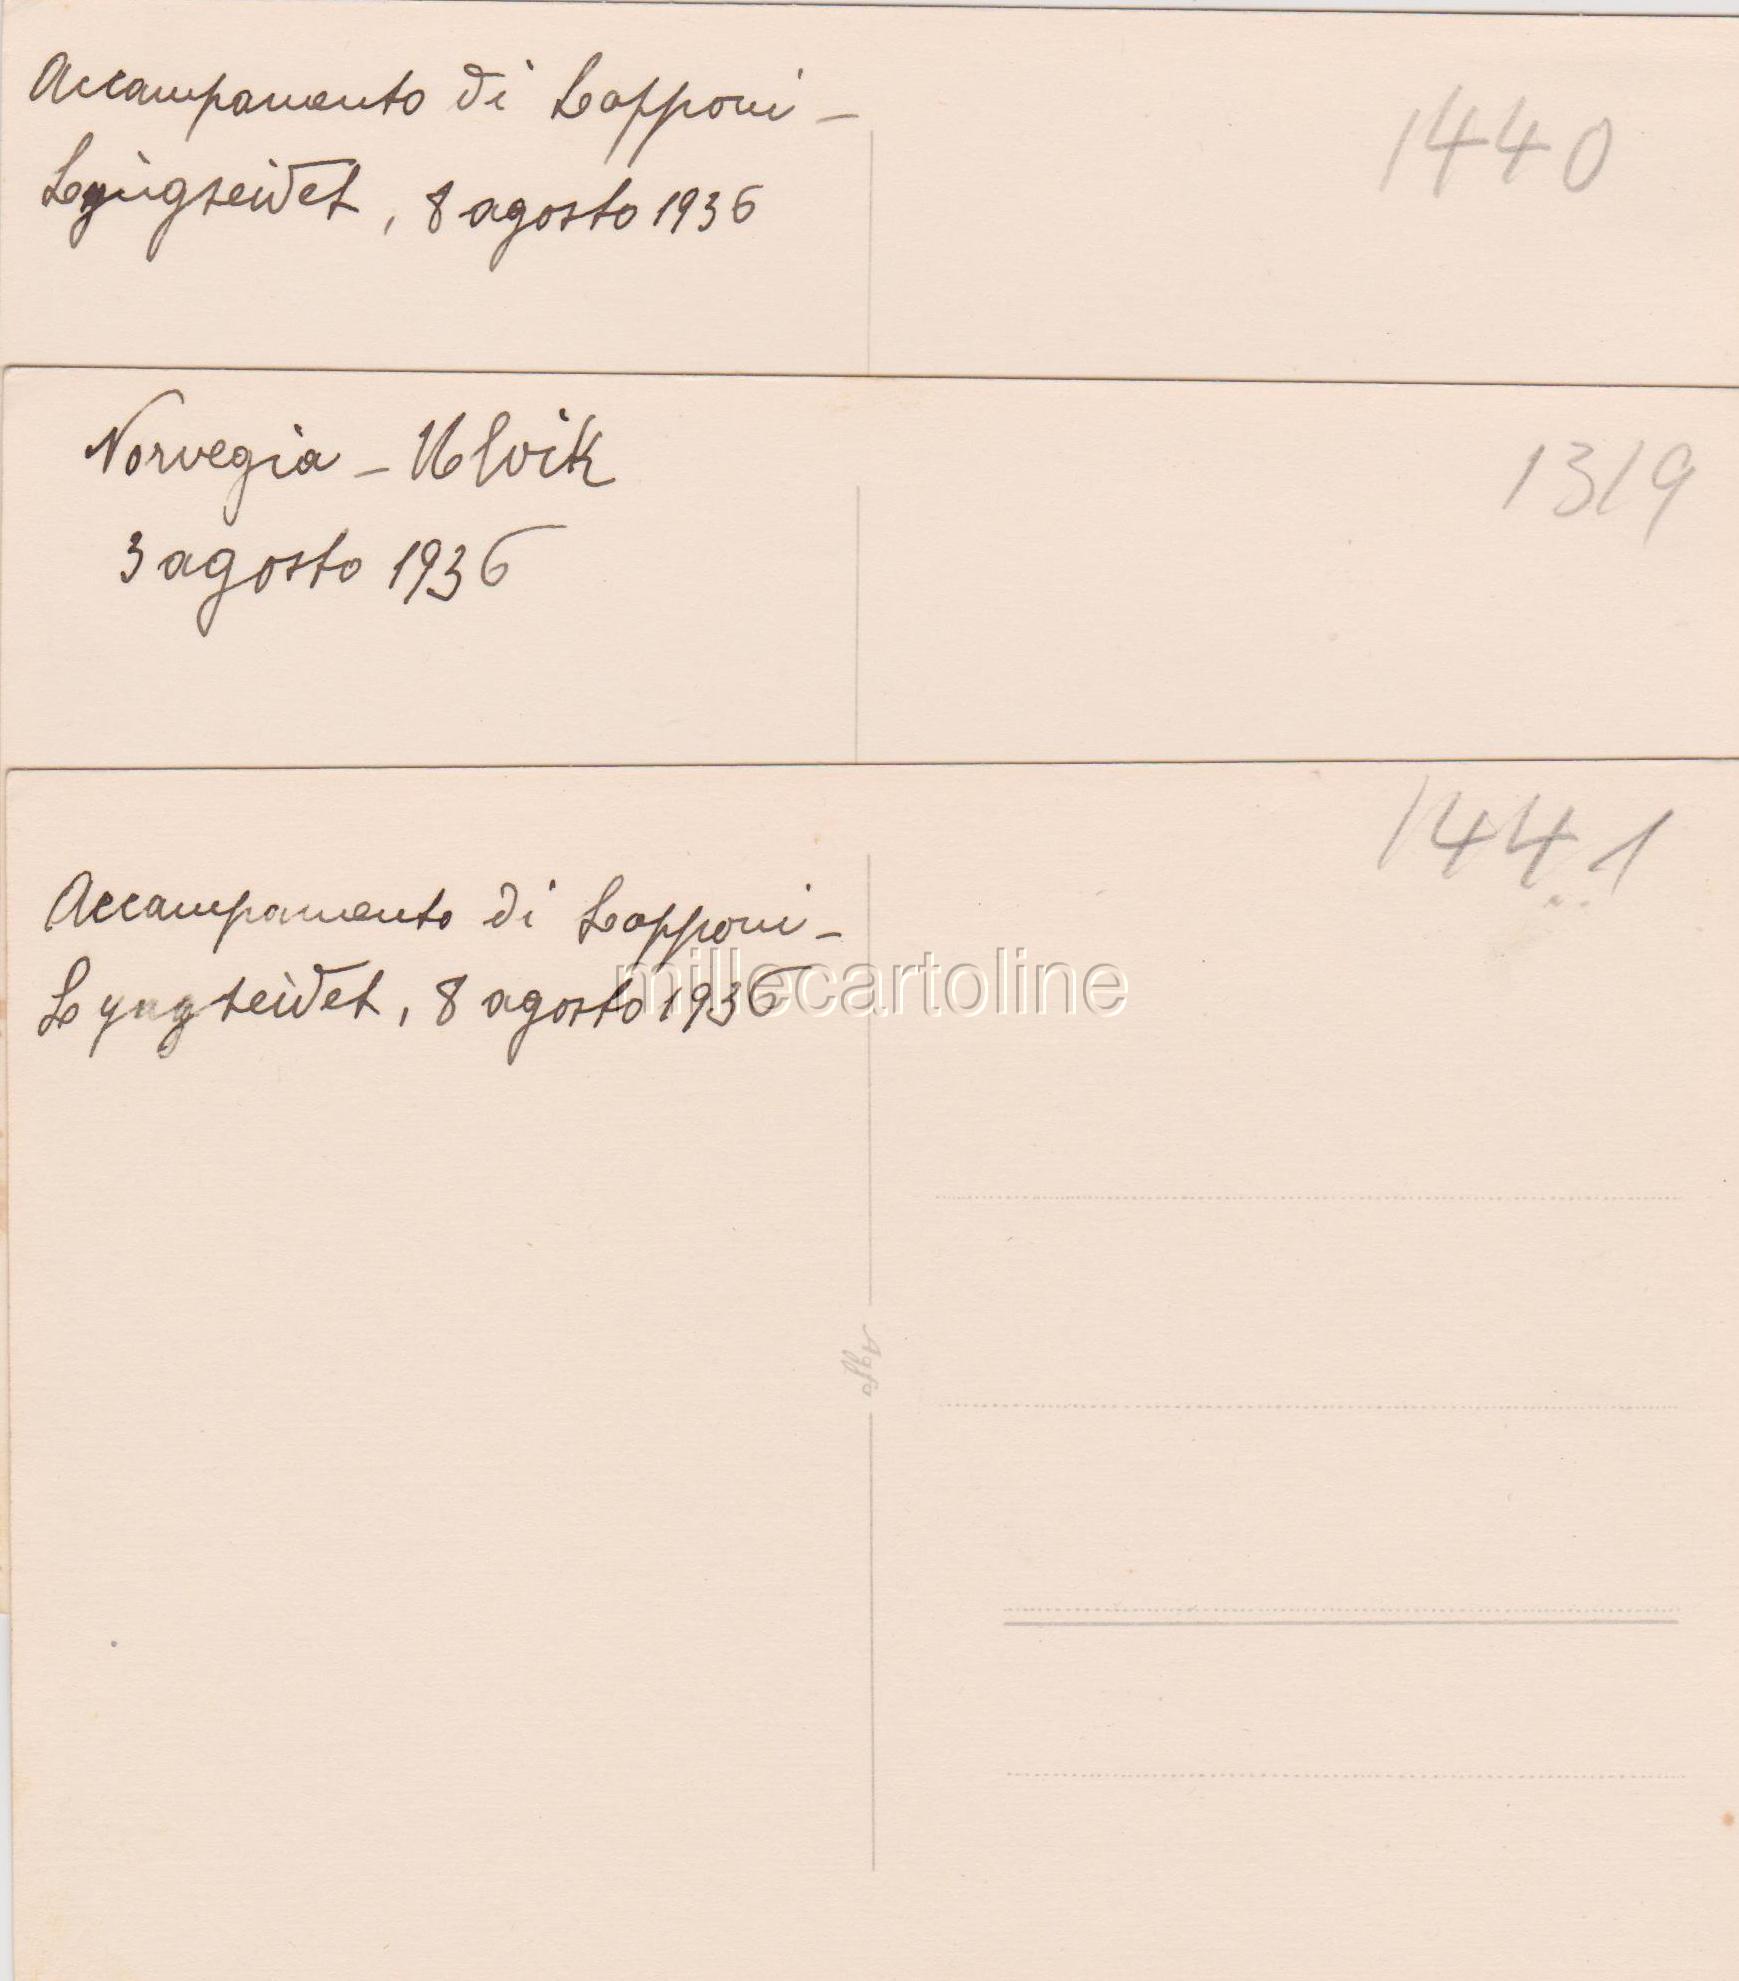 Accampamento di Lapponi –
1440
Lyngseidet, 8 agosto 1936
Norvegia – Ulvik
1319
3 agosto 1936
1441
Accampamento di Lapponi –
Lyngseidet, 8 agosto 1936
millecartoline
Agfa